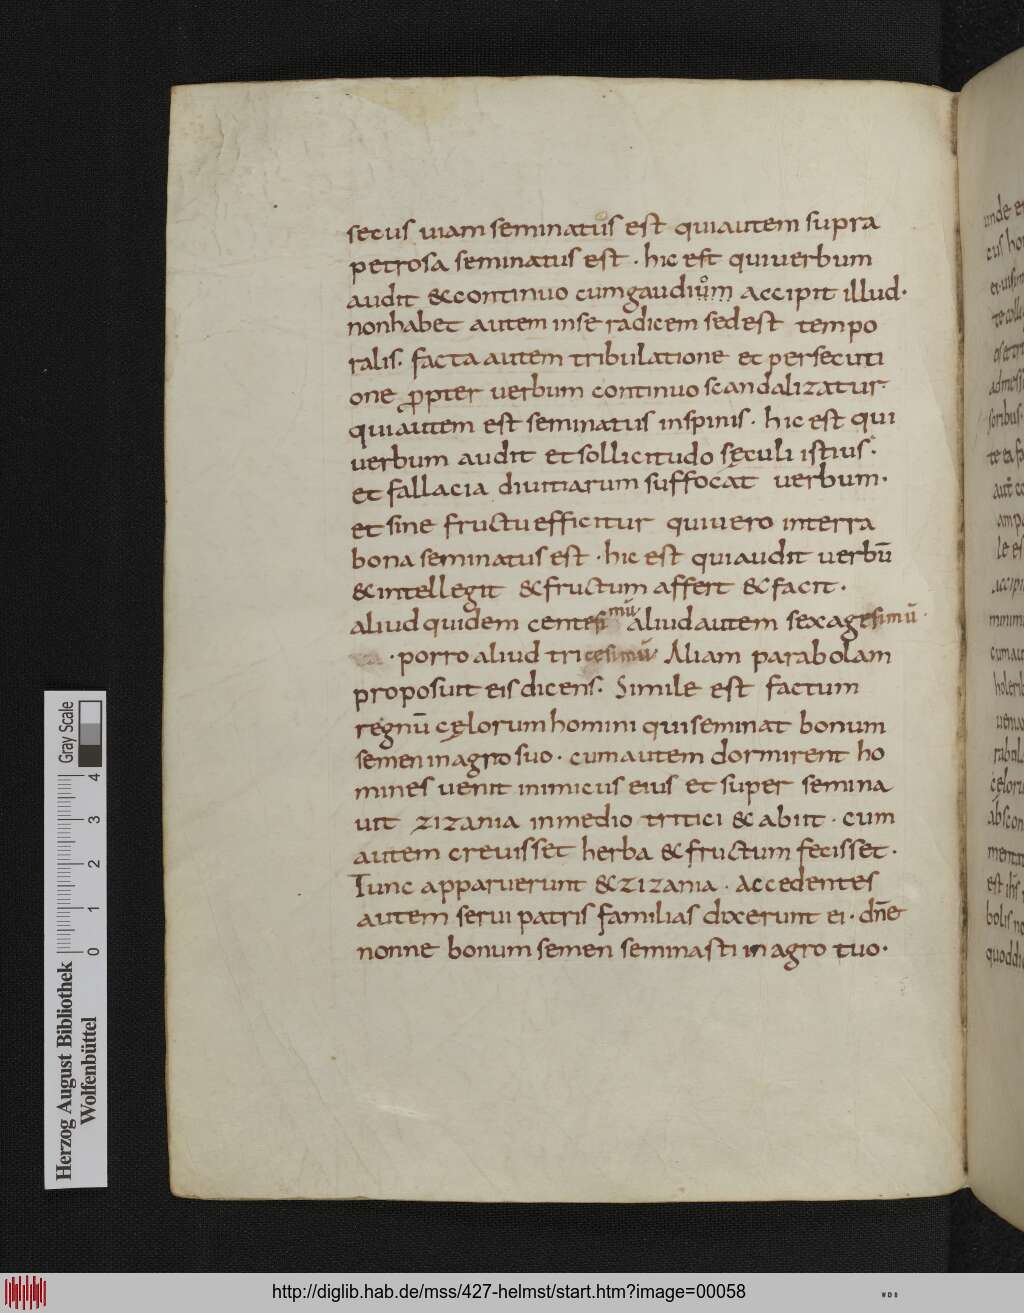 secus uiam seminatus est quiautem supra
petrosa seminatus est · hic est quiuerbum
audit &continuo cumgaudium accipit illud ·
nonhabet autem inse radicem sedest tempo
ralis · facta autem tribulatione et persecuti
one ꝓpter uerbum continuo scandalizatur ·
quiautem est seminatus inspinis · hic est qui
uerbum audit et sollicitudo sęculi istius ·
et fallacia diuitiarum suffocat uerbum ·
et sine fructuefficitur quiuero interra
bona seminatus est · hic est quiaudit uerbū
&intellegit &fructum affert &facit ·
aliud quidem centesimū aliud autem sexagesimū ·
· porro aliud tricesimū · Aliam parabolam
proposuit eis dicens · Simile est factum
regnū cęlorum homini quiseminat bonum
semen inagro suo · cum autem dormirent ho
mines uenit inimicus eius et super semina
uit zizania inmedio tritici & abiit · cum
autem creuisset herba &fructum fecisset ·
Tunc apparuerunt &zizania · Accedentes
autem serui patris familias dixerunt ei · dn̄e
nonne bonum semen seminasti in agro tuo ·
Herzog August Bibliothek
Wolfenbüttel
Gray Scale
0 1 2 3 4
http://diglib.hab.de/mss/427-helmst/start.htm?image=00058